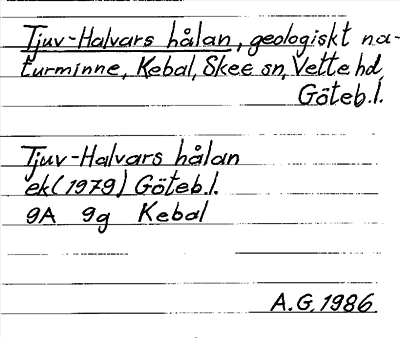 Tjuv-Halvars hålan, geologiskt na-
turminne, Kebal, Skee sn, Vette hd,
Göteb.l.
Tjuv-Halvars hålan
ek(1979) Göteb.l.
9A 9g Kebal
A.G. 1986